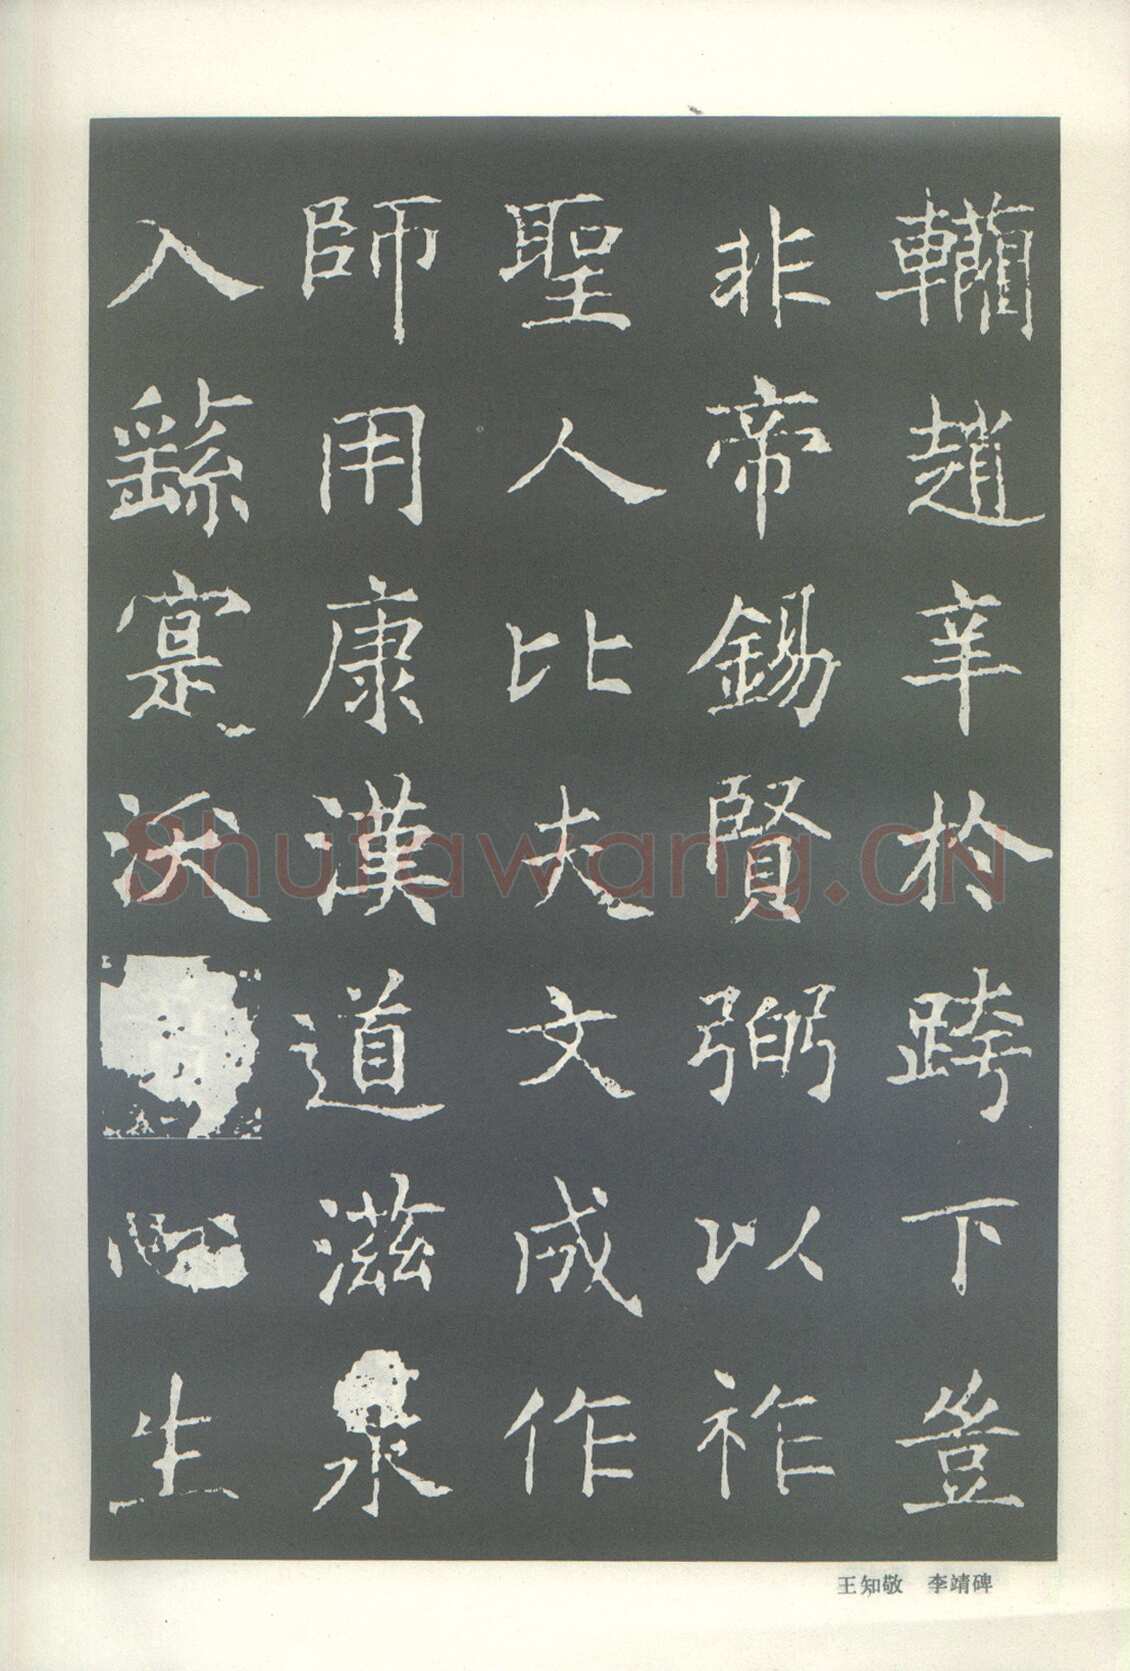 轥趙辛於跨下豈
非帝錫賢弼以祚
聖人比夫文成作
師用康漢道滋泉
入繇寔沃心生
王知敬 李靖碑
Shufawang.CN